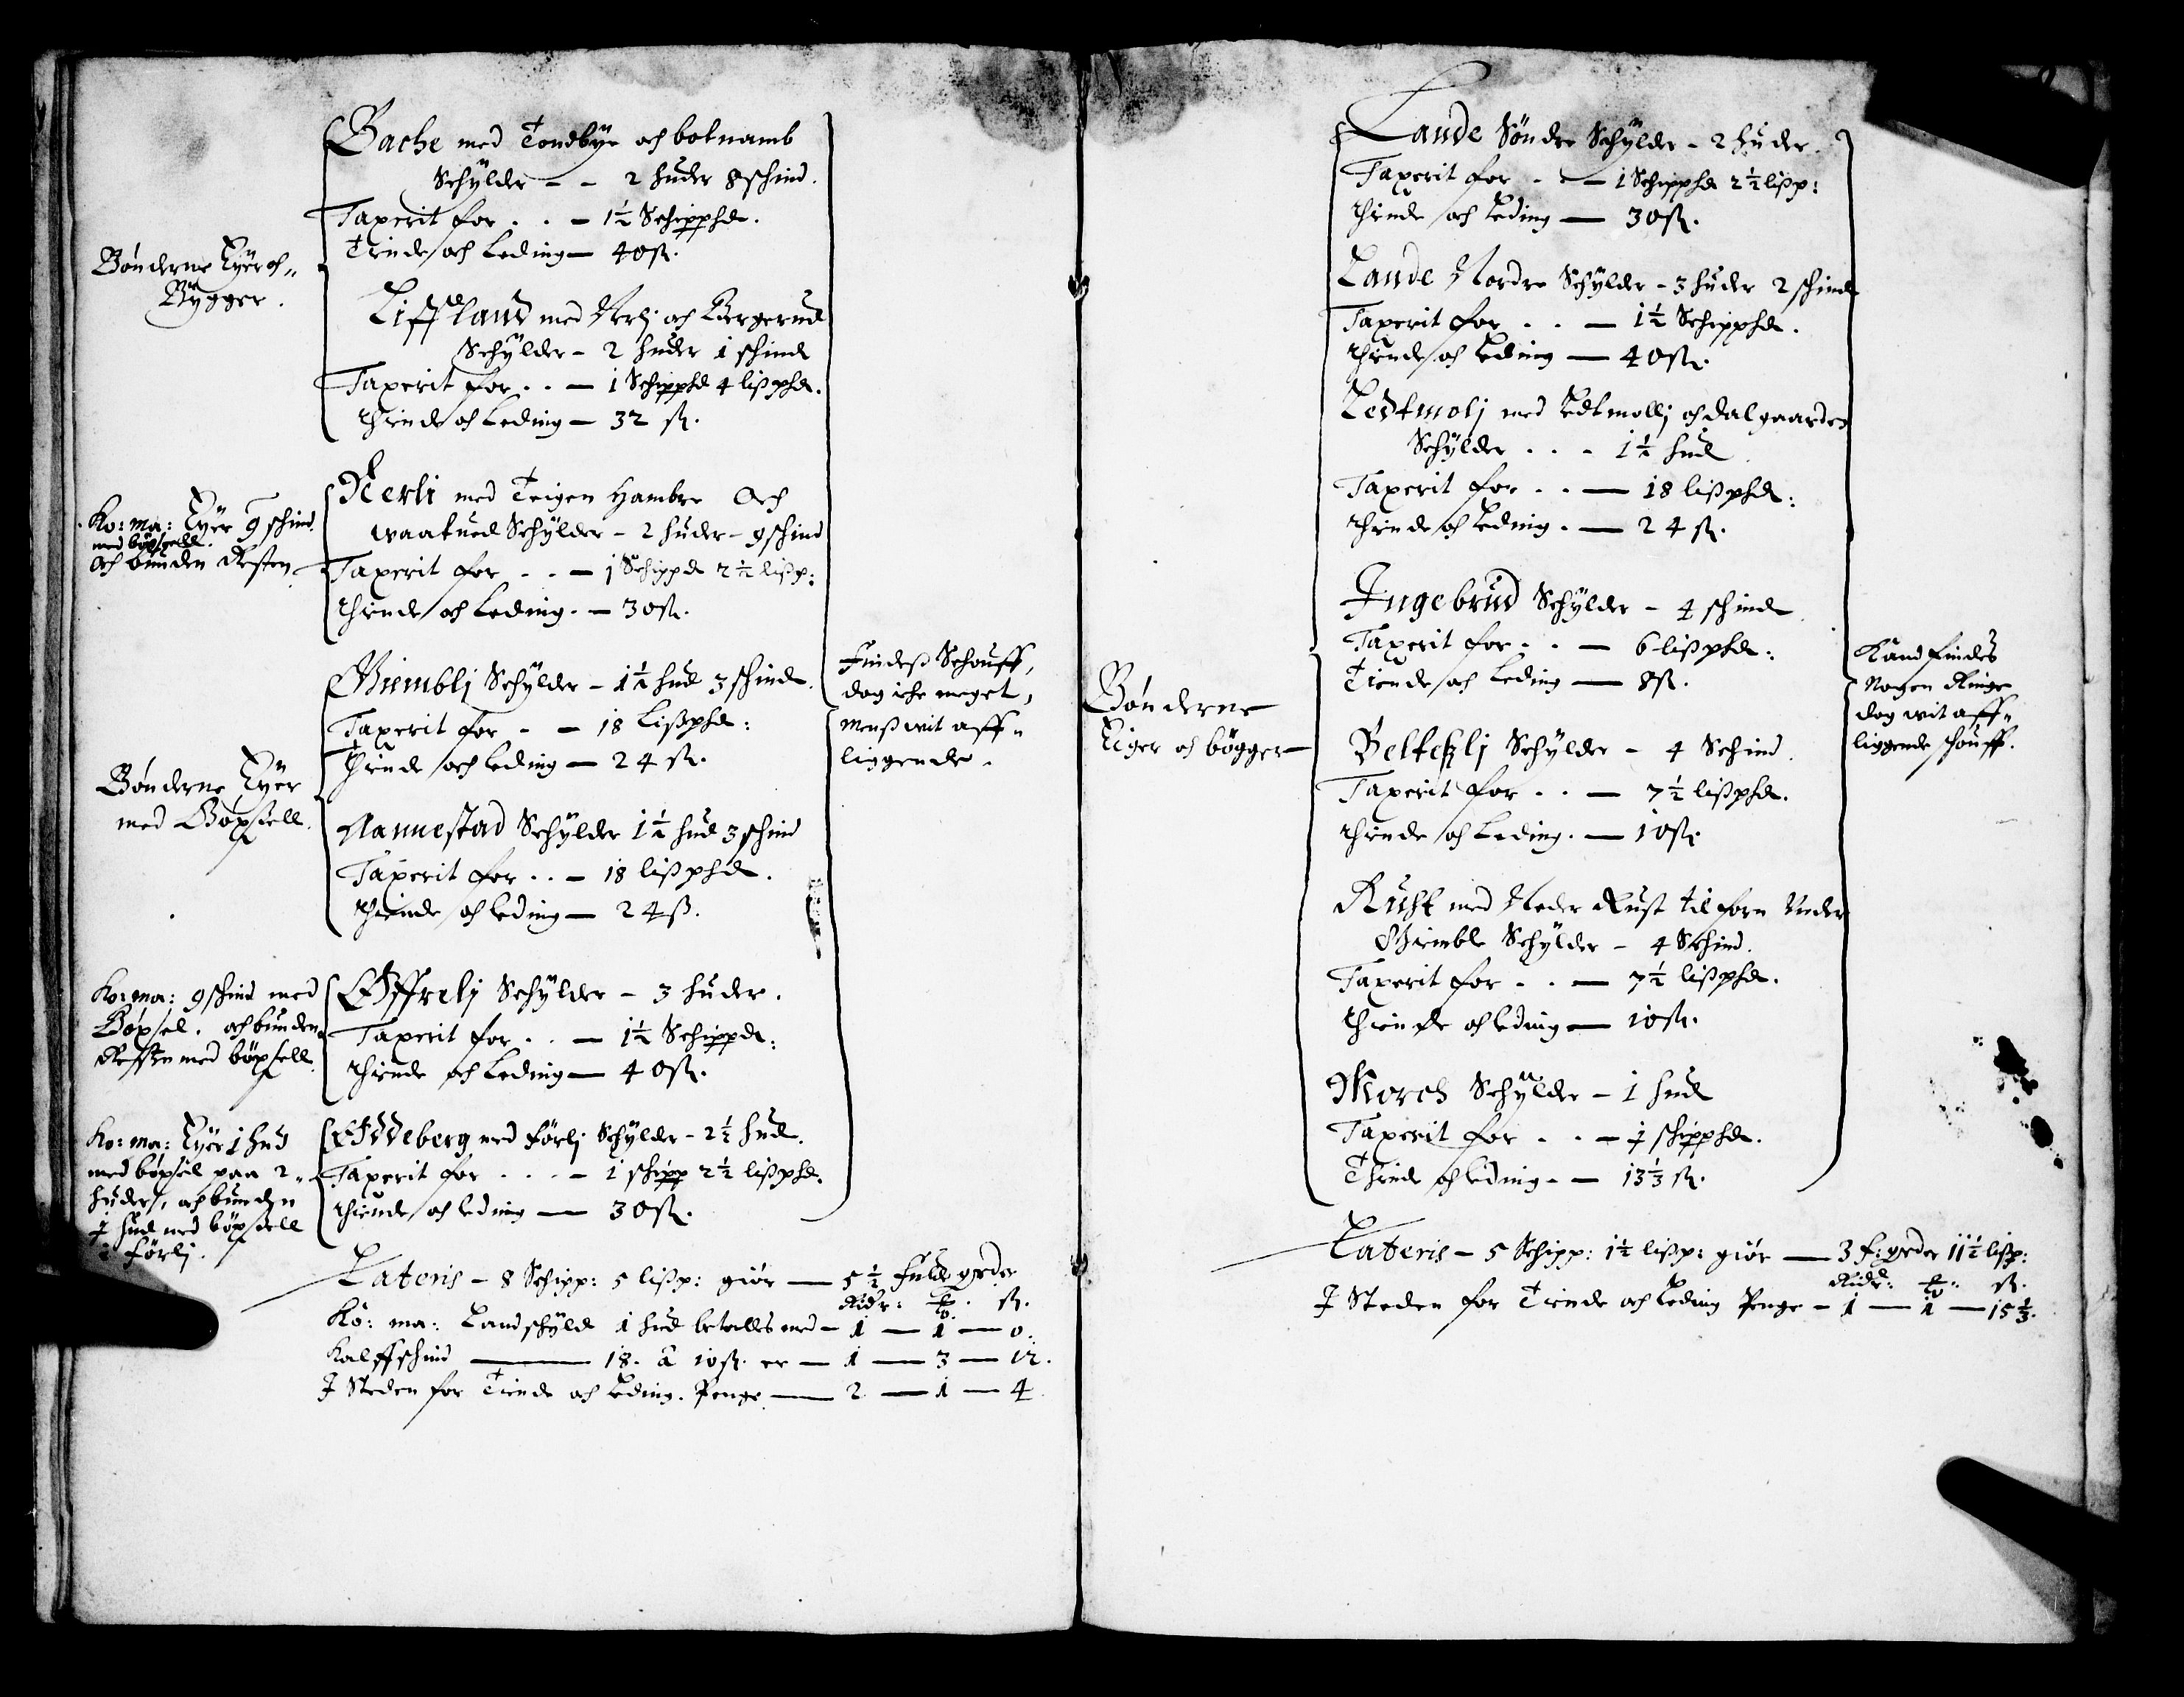 Bache med Tondbÿe och botnamb
Schÿlder - - 2 huder 8 schind.
Taxerit for . . - 1½ Schippd.
Tiende och Leding - 40 ß.
Bønderne Eÿer och
Bÿgger.
Liffland med Nerlj och Bergerud
Schÿlder - 2 huder 1 schind
Taxerit for . . - 1 Schippd 4 lißpd.
Thiende och Leding - 32 ß.
Ko: ma: Eÿer 9 schind.
med böxsell.
och bunden Resten
Nerli med Teigen Hambre Och
waatued Schÿlder - 2 huder - 9 schind
Taxerit for . . - 1 Schippd 2½ lißp:
Thiende och Leding. - 30 ß.
Bønderne Eÿer
med Böxsell.
Giemblj Schÿlder - 1½ hud 3 schind.
Taxerit for - - 18 Lißpd:
Thiende och Leding - 24 ß.
Nannestad Schÿlder 1½ hud 3 schind
Taxerit for . . - 18 lißpd.
Thiende och leding - 24 ß.
Findeß Schouff,
dog iche meget,
menß wit aff-
liggende.
Ko: ma: 9 schind med
Böxsel. och bunden
Resten med böxsell.
Øffrelj Schÿlder - 3 huder.
Taxerit for . . - 1½ Schippd.
Thiende och Leding - 40 ß.
Ko: ma: Eÿer 1 hud
med böxsel paa 2
huder, och bunden
1 hud med böxsell
i Førlj.
Oddeberg med Førlj Schÿlder - 2½ hud.
Taxerit for . . . - 1 schipp 2½ lißpd.
Thiende och leding - 30 ß.
Lateris - 8 Schipp: 5 lißp: giör - 5½ Fulde gorder
Ridr: ß.
Ko: ma: Landschÿld 1 hud betalles med - 1 - 1 - 0.
Kalffschind - 18. a 10 ß. er - 1 - 3 - 12.
J Steden for Tiende och Leding. Penge - 2 - 1 - 4
Lande Søndre Schÿlder - 2 huder.
Taxerit for - - - 1 Schippd 2½ lißp:
Thiende och Leding - 30 ß.
Lande Nordre Schÿlder - 3 huder 2 schind
Taxerit for . . - 1½ Schippd.
Thiende och Leding - 40 ß.
Ledtmolj med Ledtmollj och dalgaarden
Schÿlder . . - 1½ hud
Taxerit for . . - 18 lißpd.
Thiende och Leding. - 24 ß.
Bønderne
Eiger och bøgger
Jngebrud Schÿlder - 4 schind.
Taxerit for . . - 6 lißpd.
Tiende och Leding - 8 ß.
Belteßlj Schÿlder - 4 Schind.
Taxerit for . . - 7½ lißpd.
Thiende och Leding. - 10 ß.
Rust med Neder Rust til forn Under
Giemble Schÿlder - 4 Schind.
Taxerit for . . - 7½ lißpd.
Thiende och leding - 10 ß.
Morch Schÿlder - 1 hud
Taxerit for . . - ½ schippd.
Thiende och leding - - 13⅓ ß.
Kand findes
Nogen Ringe
dog wit aff-
liggende schouff.
Lateris - 5 Schipp: 1½ lißp: giör - 3 f: gorder 11½ lißp:
Ridr: ß.
J Steden for Tiende och Leding Penge - 1 - 1 - 15⅓.